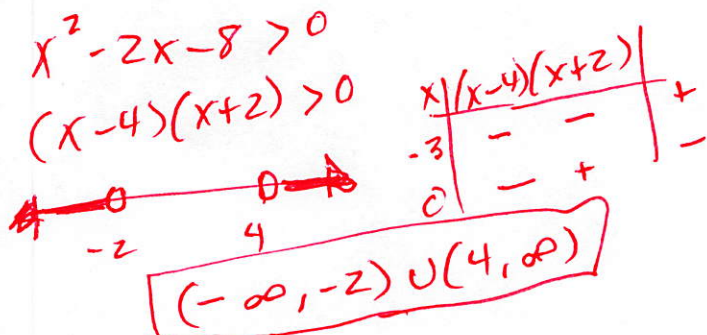 x² - 2x - 8 > 0
(x-4)(x+2) > 0
-2 4
x | (x-4)(x+2) |
-3 | - - | +
0 | - + | -
(-∞, -2) ∪ (4, ∞)